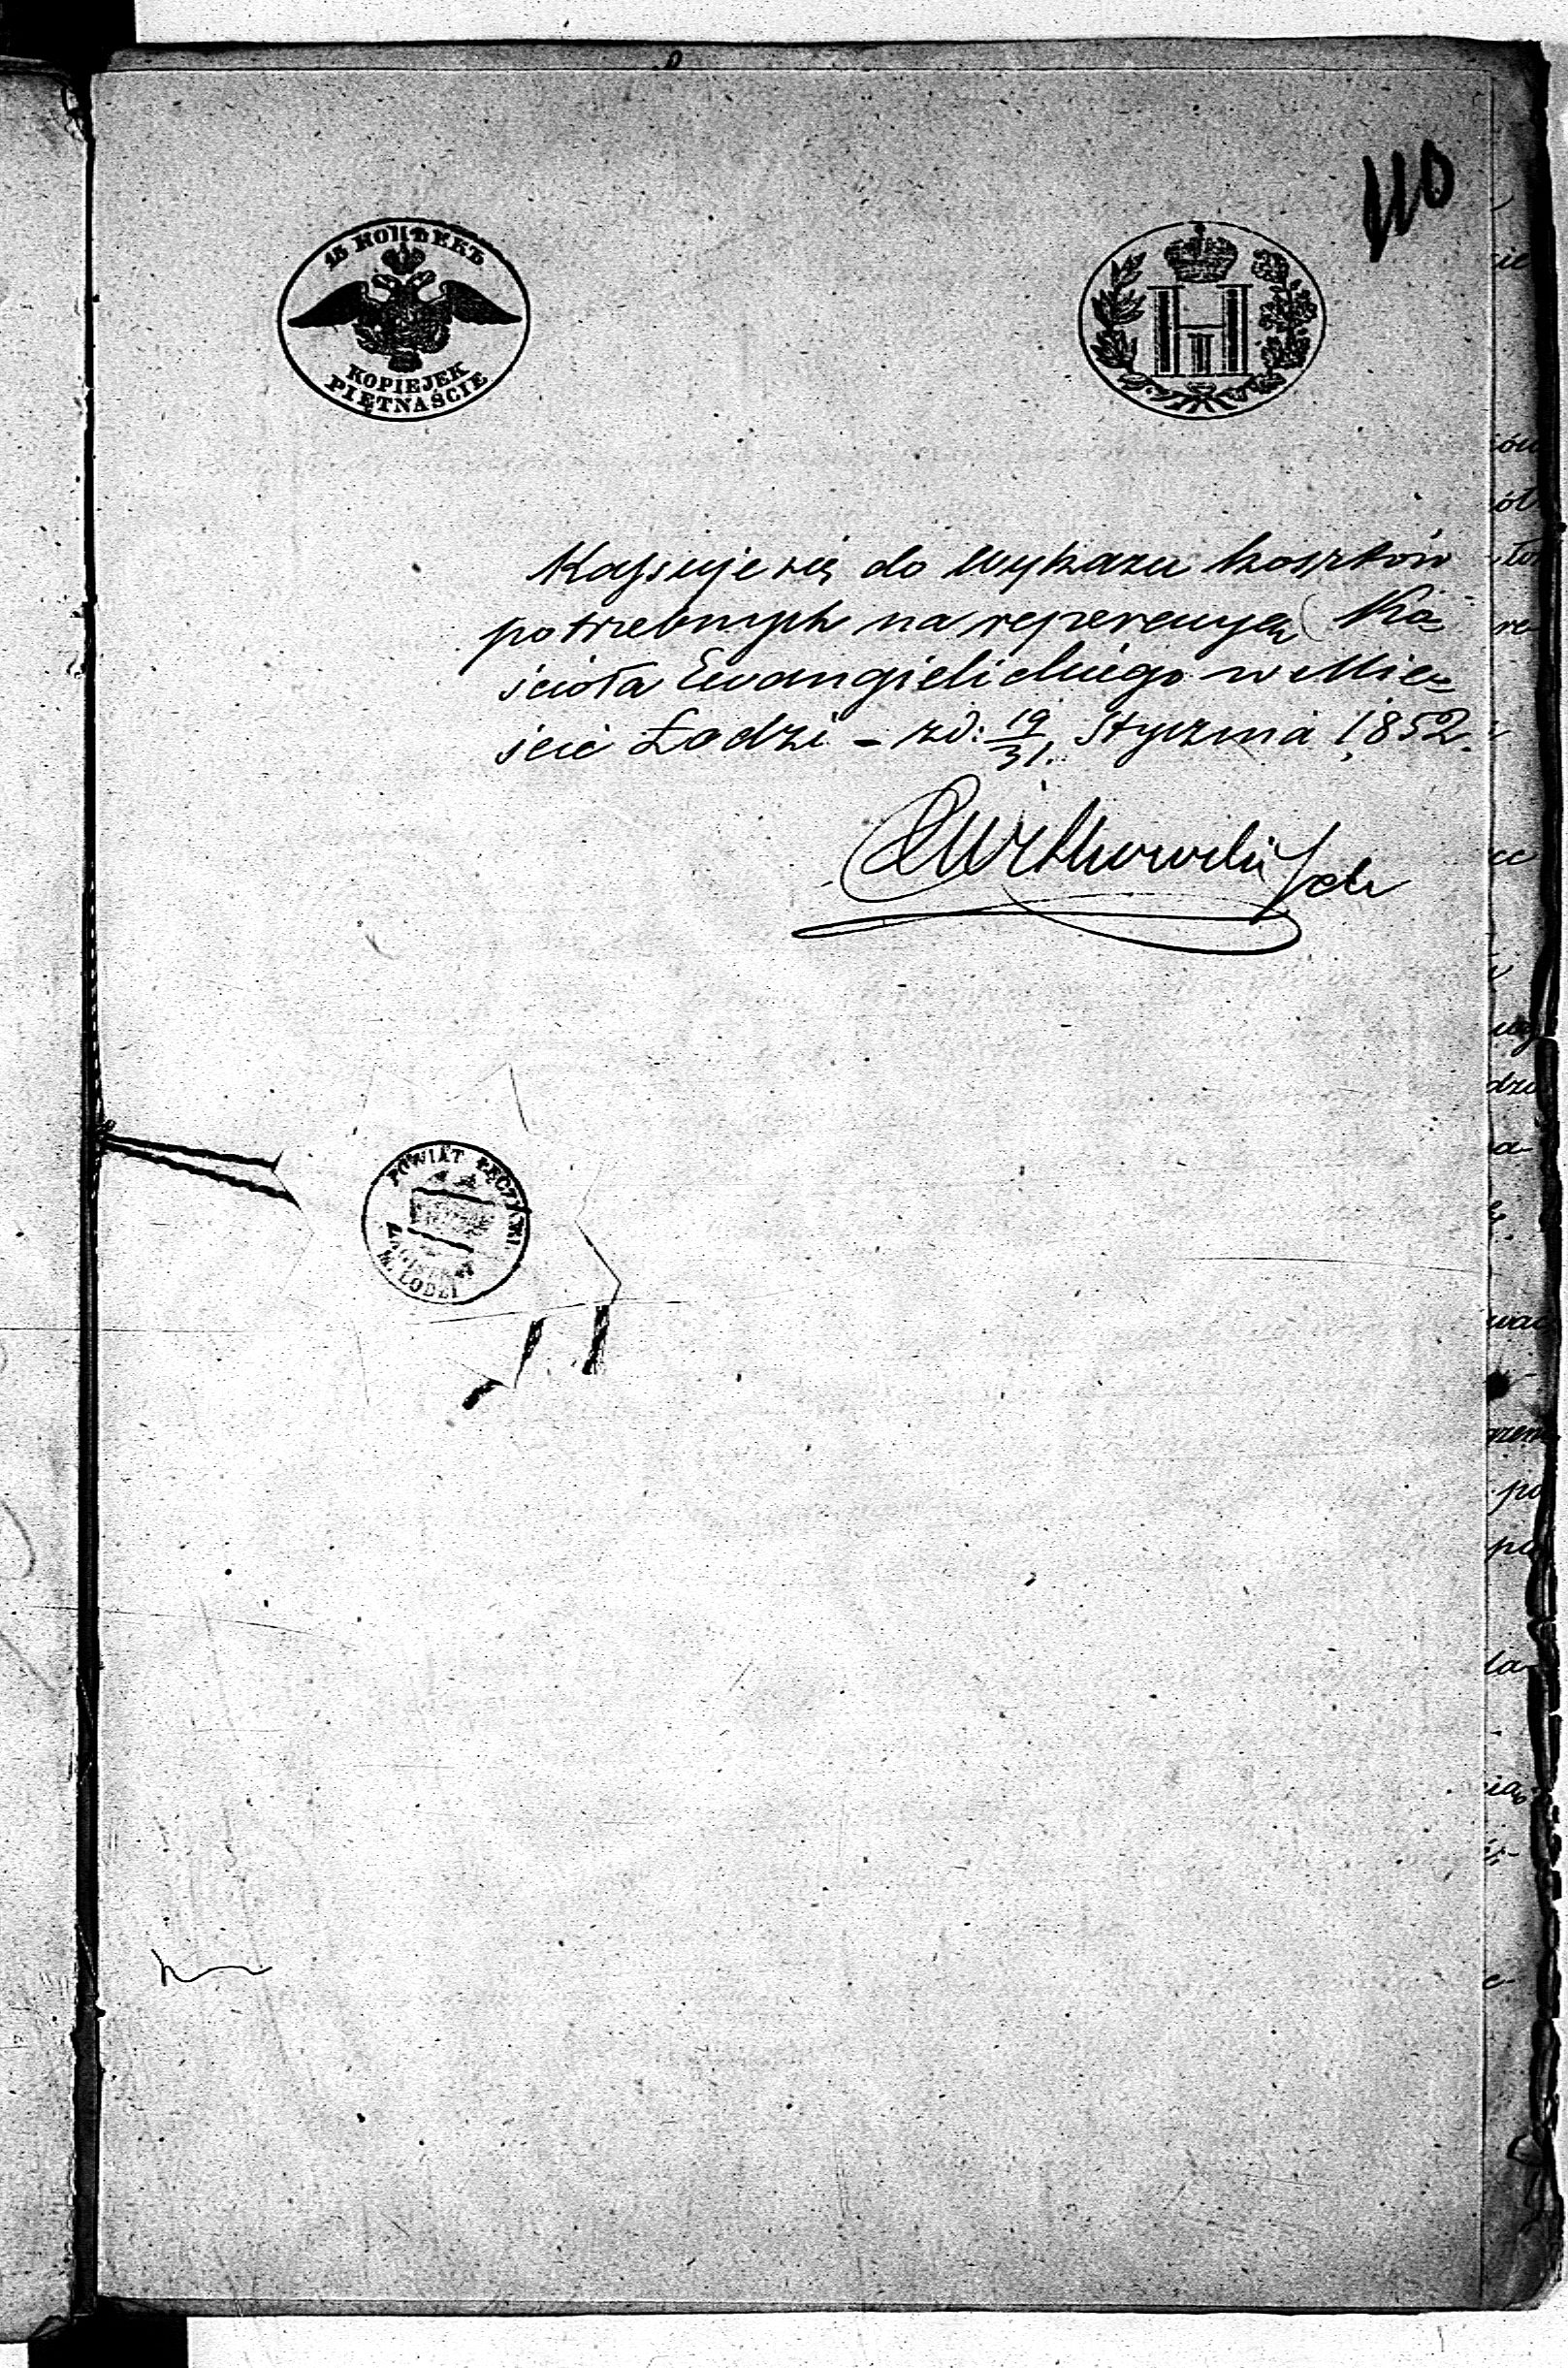 110
15 КОПѢЕКЪ
KOPIEJEK
PIĘTNAŚCIE
Kassuje się do Wykazu kosztów
potrzebnych na reperacyą Ko-
ścioła Ewangielickiego w Mie-
ście Łodzi - zd: 19/31. Stycznia 1852.
POWIAT ŁĘCZYCKI
MAGISTRAT
M. ŁODZI